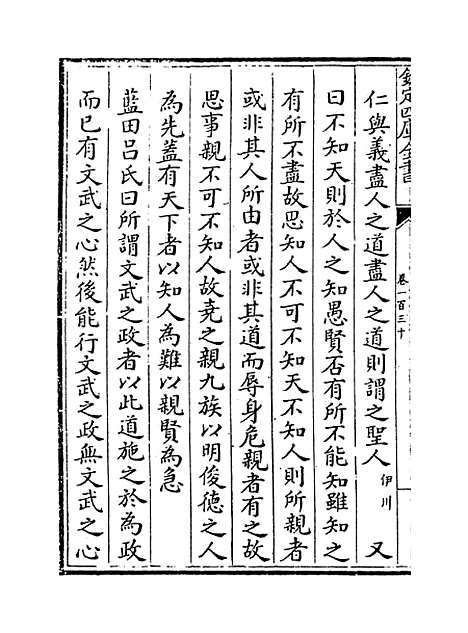 欽定四庫全書
卷一百三十
仁與義盡人之道盡人之道則謂之聖人伊川 又
曰不知天則於人之知愚賢否有所不能知雖知之
有所不盡故思知人不可不知天不知人則所親者
或非其人所由者或非其道而辱身危親者有之故
思事親不可不知人故堯之親九族以明俊德之人
為先蓋有天下者以知人為難以親賢為急
藍田呂氏曰所謂文武之政者以此道施之於為政
而已有文武之心然後能行文武之政無文武之心